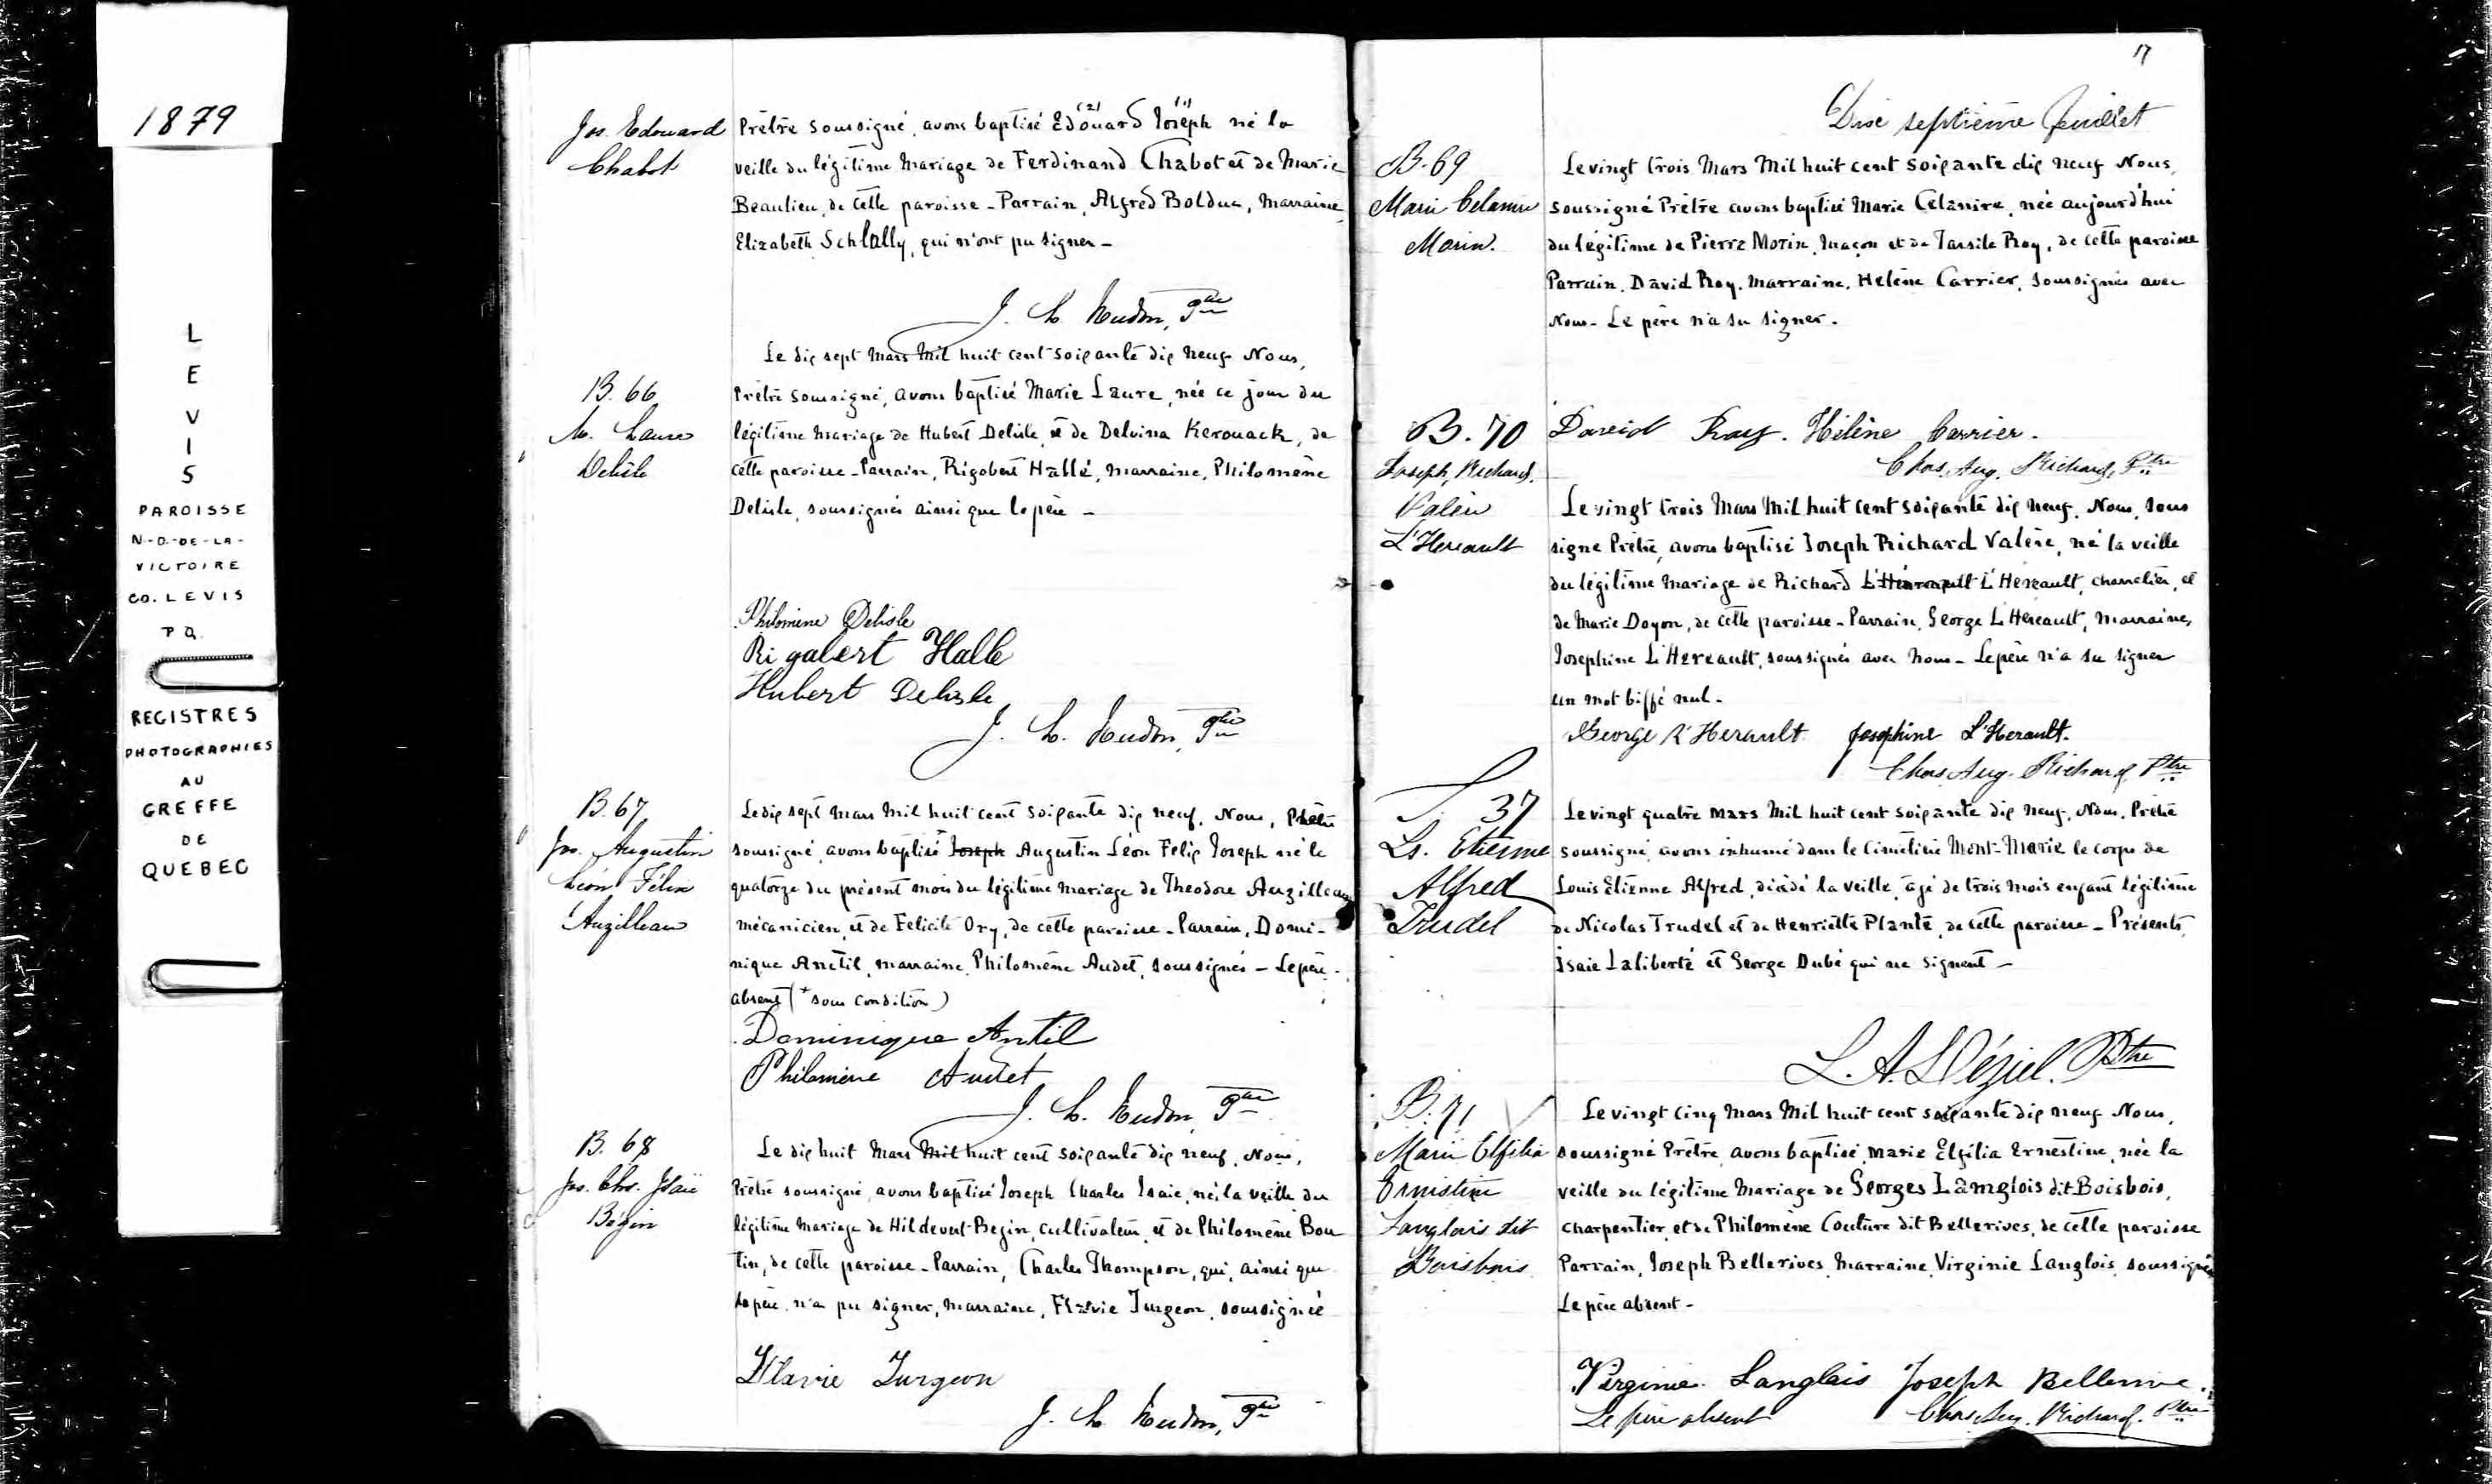 1879
L
E
V
I
S
PAROISSE
N.-D.-DE-LA-
VICTOIRE
CO. LEVIS
P Q.
REGISTRES
PHOTOGRAPHIES
AU
GREFFE
DE
QUEBEC
Jos. Edouard
Chabot
Prêtre soussigné, avons baptisé Edouard (2) Joseph (1) né la
veille du légitime mariage de Ferdinand Chabot et de Marie
Beaulieu, de cette paroisse - Parrain, Alfred Bolduc, Marraine
Elizabeth Schlally, qui n'ont pu signer -
J. H. Hudon, Ptre
B. 66
M. Laure
Delisle
Le dix sept Mars Mil huit cent soixante dix neuf Nous,
Prêtre soussigné, avons baptisé Marie Laure, née ce jour du
légitime mariage de Hubert Delisle, et de Delvina Kerouack, de
cette paroisse - Parrain, Rigobert Hallé, marraine, Philomène
Delisle, soussignés ainsi que le père -
Philomène Delisle
Rigabert Halle
Hubert Delisle
J. H. Hudon, Ptre
B. 67
Jos. Augustin
Léon Félix
Auzilleau
Le dix sept Mars Mil huit cent soixante dix neuf, Nous, Prêtre
soussigné, avons baptisé * Joseph Augustin Léon Felix Joseph né le
quatorze du présent mois du légitime mariage de Theodore Auzilleau
mécanicien, et de Felicité Ory, de cette paroisse - Parrain, Domi-
nique Anctil, marraine, Philomène Audet, soussignés - Le père
absent (* sous condition)
Dominique Antil
Philomène Audet
J. H. Hudon, Ptre
B. 68
Jos. Chs. Isaïe
Bégin
Le dix huit Mars Mil huit cent soixante dix neuf, Nous,
Prêtre soussigné, avons baptisé Joseph Charles Isaïe, né la veille du
légitime Mariage de Hildevert Begin, cultivateur, et de Philomène Bou
tin, de cette paroisse - Parrain, Charles Thompson, qui, ainsi que
le père, n'a pu signer, marraine, Flavie Turgeon, soussignée
Flavie Turgeon
J. H. Hudon, Ptre
17
Dixe septième feuillet
B. 69
Marie Celanire
Morin.
Le vingt trois Mars Mil huit cent soixante dix neuf Nous,
soussigné Prêtre avons baptisé Marie Célanire, née aujourd'hui
du légitime de Pierre Morin, Maçon et de Tarsile Roy, de cette paroisse
Parrain, David Roy. Marraine, Helène Carrier, soussignés avec
Nous - Le père n'a su signer.
David Roy. Hélène Carrier.
Chas. Aug. Richard, Ptre
B. 70
Joseph, Richard,
Valère
L'Hereault
Le vingt trois Mars Mil huit cent soixante dix neuf, Nous, sous
signé Prêtre, avons baptisé Joseph Richard Valère, né la veille
du légitime mariage de Richard L'Hereault, charretier, et
de Marie Doyon, de cette paroisse - Parrain, George L'Hereault, marraine,
Josephine L'Hereault, soussignés avec nous - Le père n'a su signer
un mot biffé nul -
George L'Herault Josephine L'Herault.
Chas Aug. Richard, Ptre
S. 37
Ls. Etienne
Alfred
Trudel
Le vingt quatre Mars Mil huit cent soixante dix neuf, Nous, Prêtre
soussigné, avons inhumé dans le Cimetière Mont-Marie le corps de
Louis Étienne Alfred, décédé la veille, agé de trois mois enfant légitime
de Nicolas Trudel et de Henriette Plante, de cette paroisse - Présents,
Isaïe Laliberté et George Dubé qui ne signent -
L. A. Déziel. Ptre
B. 71
Marie Elfélia
Ernestine
Langlois dit
Boisbois
Le vingt cinq Mars Mil huit cent soixante dix neuf Nous,
soussigné Prêtre, avons baptisé, Marie Elfélia Ernestine, née la
veille du légitime Mariage de Georges Langlois dit Boisbois,
charpentier, et de Philomène Couture dit Bellerives, de cette paroisse
Parrain, Joseph Bellerives, Marraine, Virginie Langlois, soussignés
Le père absent -
Virginie Langlais Joseph Bellerive.
Le père absent Chas Aug. Richard, Ptre